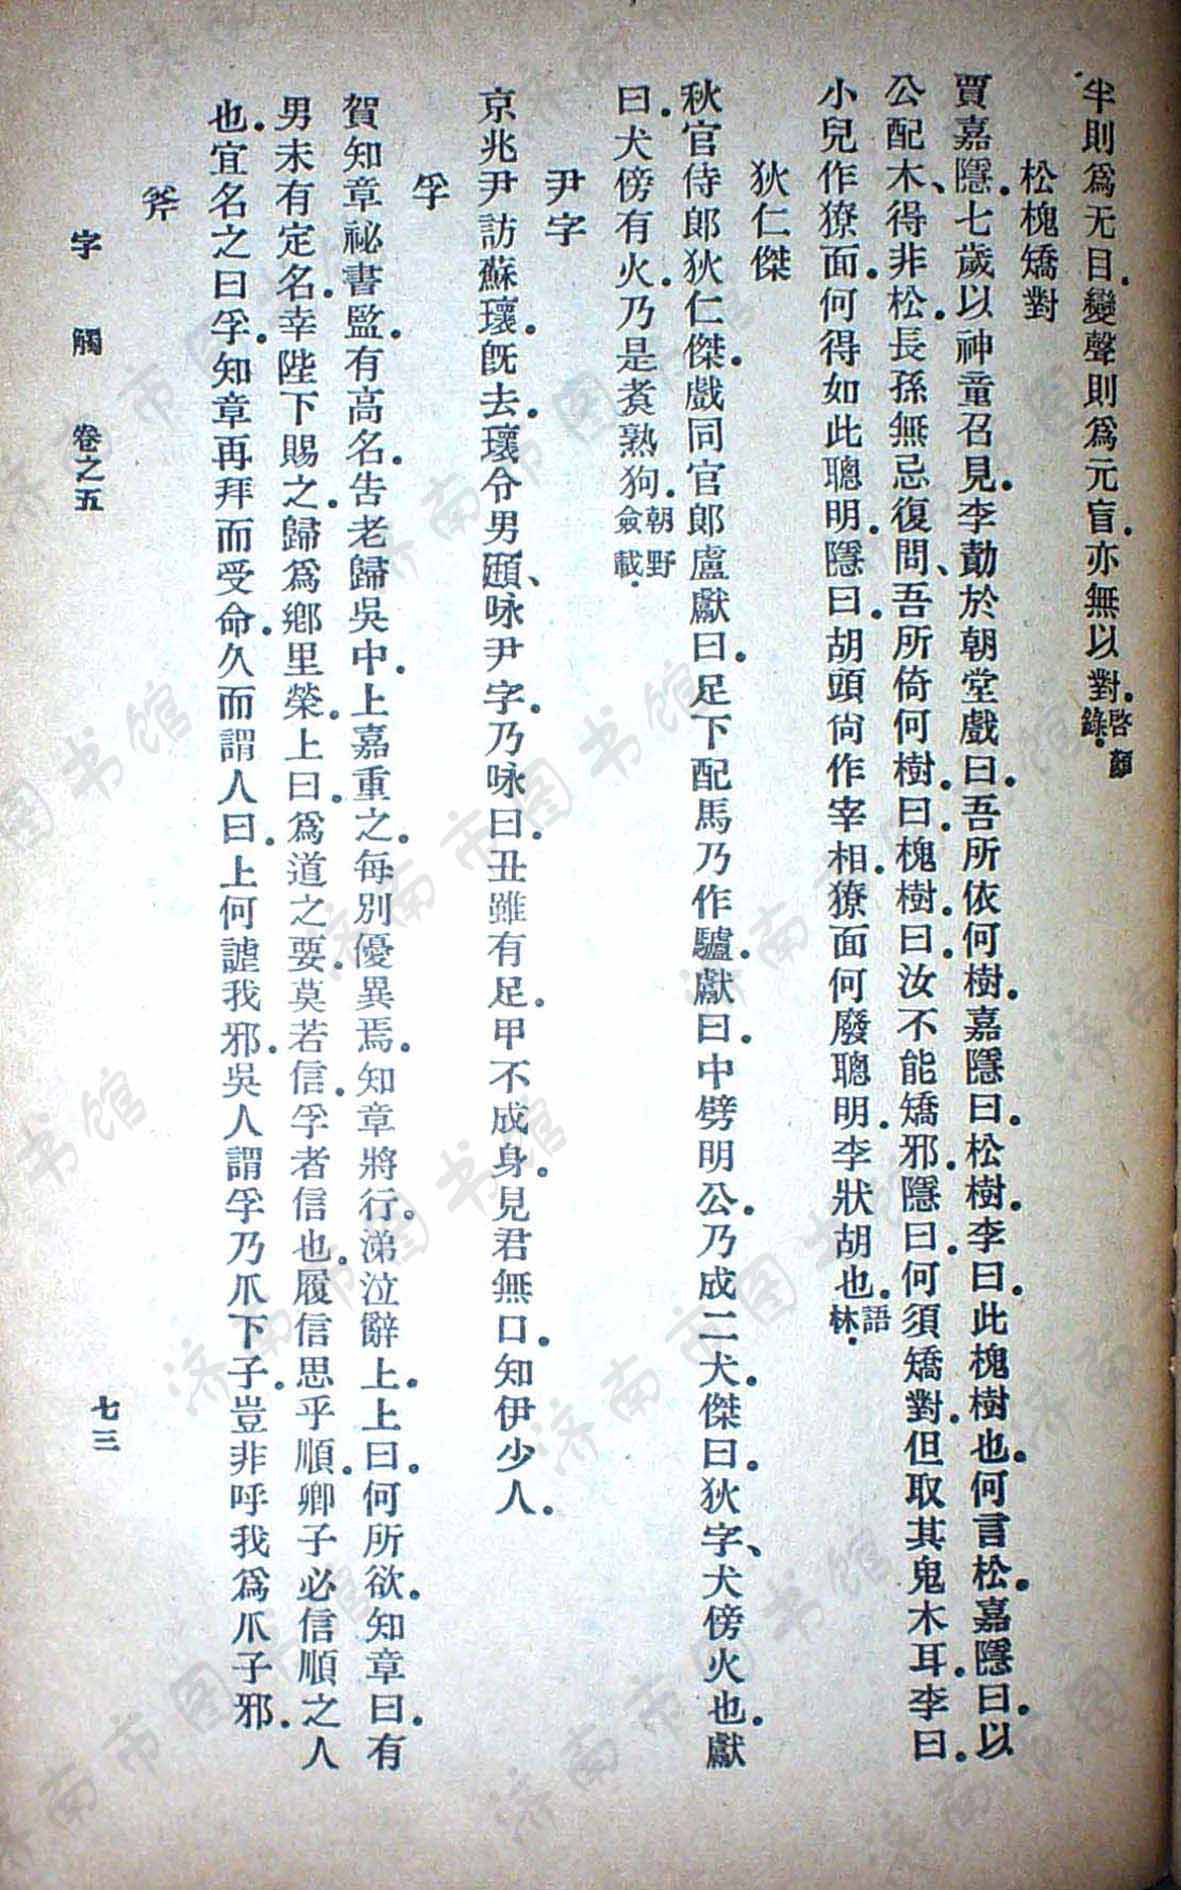 芈則爲无目。變聲則爲元盲。亦無以對。啓顏錄。
松槐矯對
賈嘉隱。七歲以神童召見。李勣於朝堂戲曰。吾所依何樹。嘉隱曰。松樹。李曰。此槐樹也。何言松。嘉隱曰。以
公配木、得非松。長孫無忌復問、吾所倚何樹。曰。槐樹。曰。汝不能矯邪。隱曰。何須矯對。但取其鬼木耳。李曰。
小兒作獠面。何得如此聰明。隱曰。胡頭尙作宰相。獠面何廢聰明。李狀胡也。語林。
狄仁傑
秋官侍郎狄仁傑。戲同官郎盧獻曰。足下配馬乃作驢。獻曰。中劈明公。乃成二犬。傑曰。狄字、犬傍火也。獻
曰。犬傍有火。乃是煑熟狗。朝野僉載。
尹字
京兆尹訪蘇瓌。旣去。瓌令男頲、咏尹字。乃咏曰。丑雖有足。甲不成身。見君無口。知伊少人。
孚
賀知章祕書監。有高名。吿老歸吳中。上嘉重之。每別優異焉。知章將行。涕泣辭上。上曰。何所欲。知章曰。有
男未有定名。幸陛下賜之。歸爲鄕里榮。上曰。爲道之要。莫若信。孚者信也。履信思乎順。卿子必信順之人
也。宜名之曰孚。知章再拜而受命。久而謂人曰。上何謔我邪。吳人謂孚乃爪下子。豈非呼我爲爪子邪。
斧
字觸 卷之五 七三